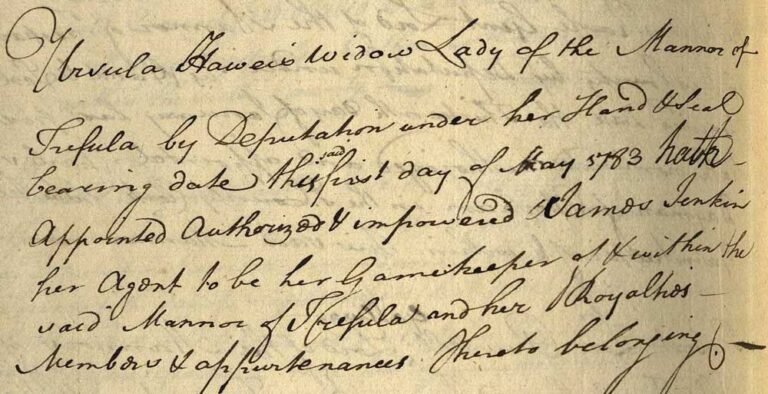 Ursula Haweis Widow Lady of the Mannor of
Trefula by Deputation under her Hand & Seal
bearing date this said first day of May 1783 hath
Appointed Authorized & impowered James Jenkin
her Agent to be her Gamekeeper of & within the
said Mannor of Trefula and her Royalties
Members & appurtenances thereto belonging.